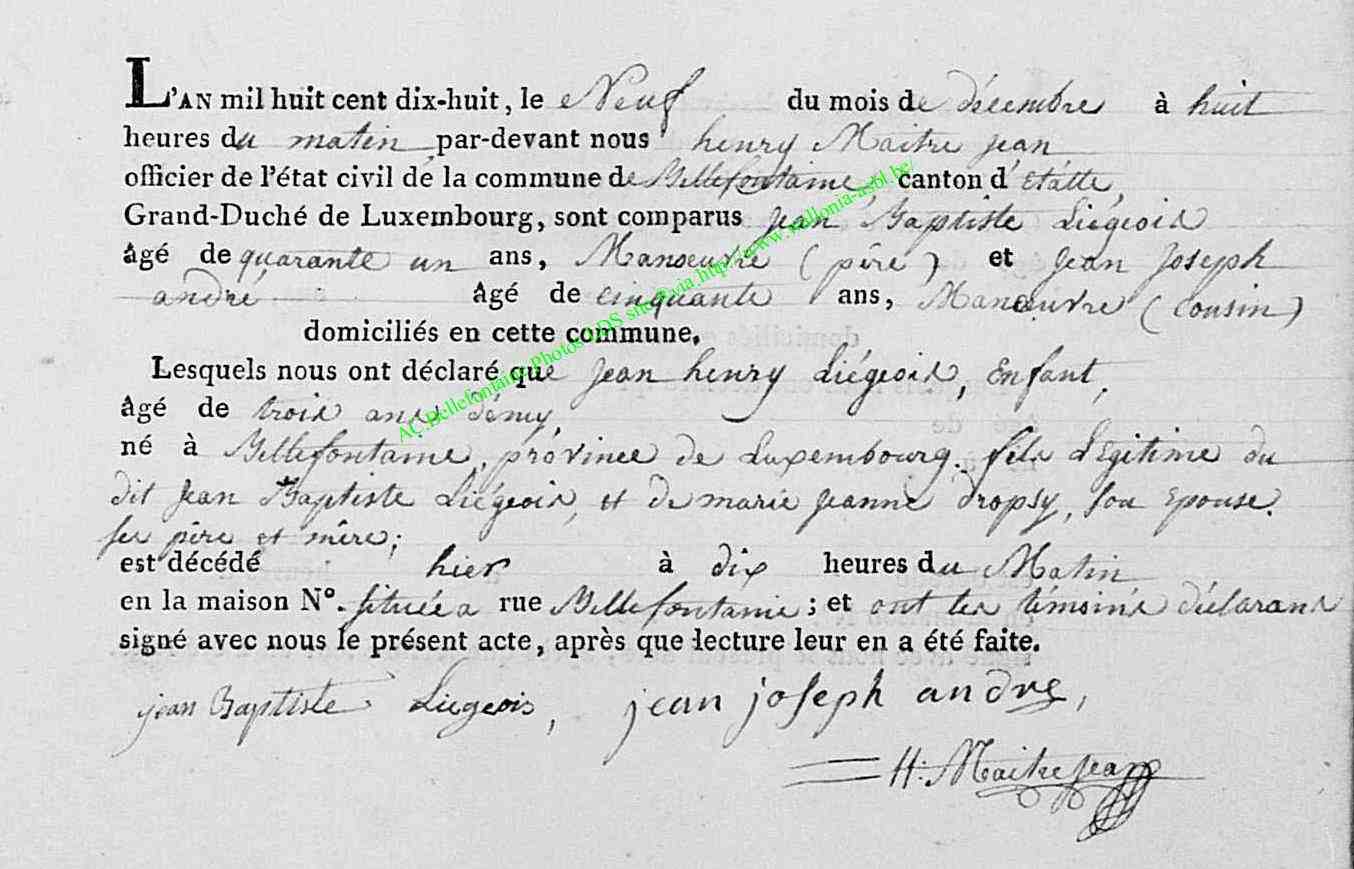 L'AN mil huit cent dix-huit, le Neuf du mois de décembre à huit
heures du matin par-devant nous henry Maitre jean
officier de l'état civil de la commune de Bellefontaine, canton d'Etalle,
Grand-Duché de Luxembourg, sont comparus Jean Baptiste Liégeois
âgé de quarante un ans, Manœuvre (père) et Jean Joseph
andré âgé de cinquante ans, Manœuvre (Cousin)
domiciliés en cette commune.
Lesquels nous ont déclaré que Jean henry Liégeois, Enfant,
âgé de trois ans démy,
né à Bellefontaine, province de Luxembourg. fils Légitime du
dit Jean Baptiste Liégeois, et de marie Jeanne Dropsy, son Epouse.
ses père et mère;
est décédé hier à dix heures du Matin
en la maison N°. située a rue Bellefontaine; et ont les témoins déclarans
signé avec nous le présent acte, après que lecture leur en a été faite.
jean Baptiste Liégeois, jean joseph andre,
H: Maitrejean
AC.Bellefontaine Photos via http://www.wallonia-asbl.be/